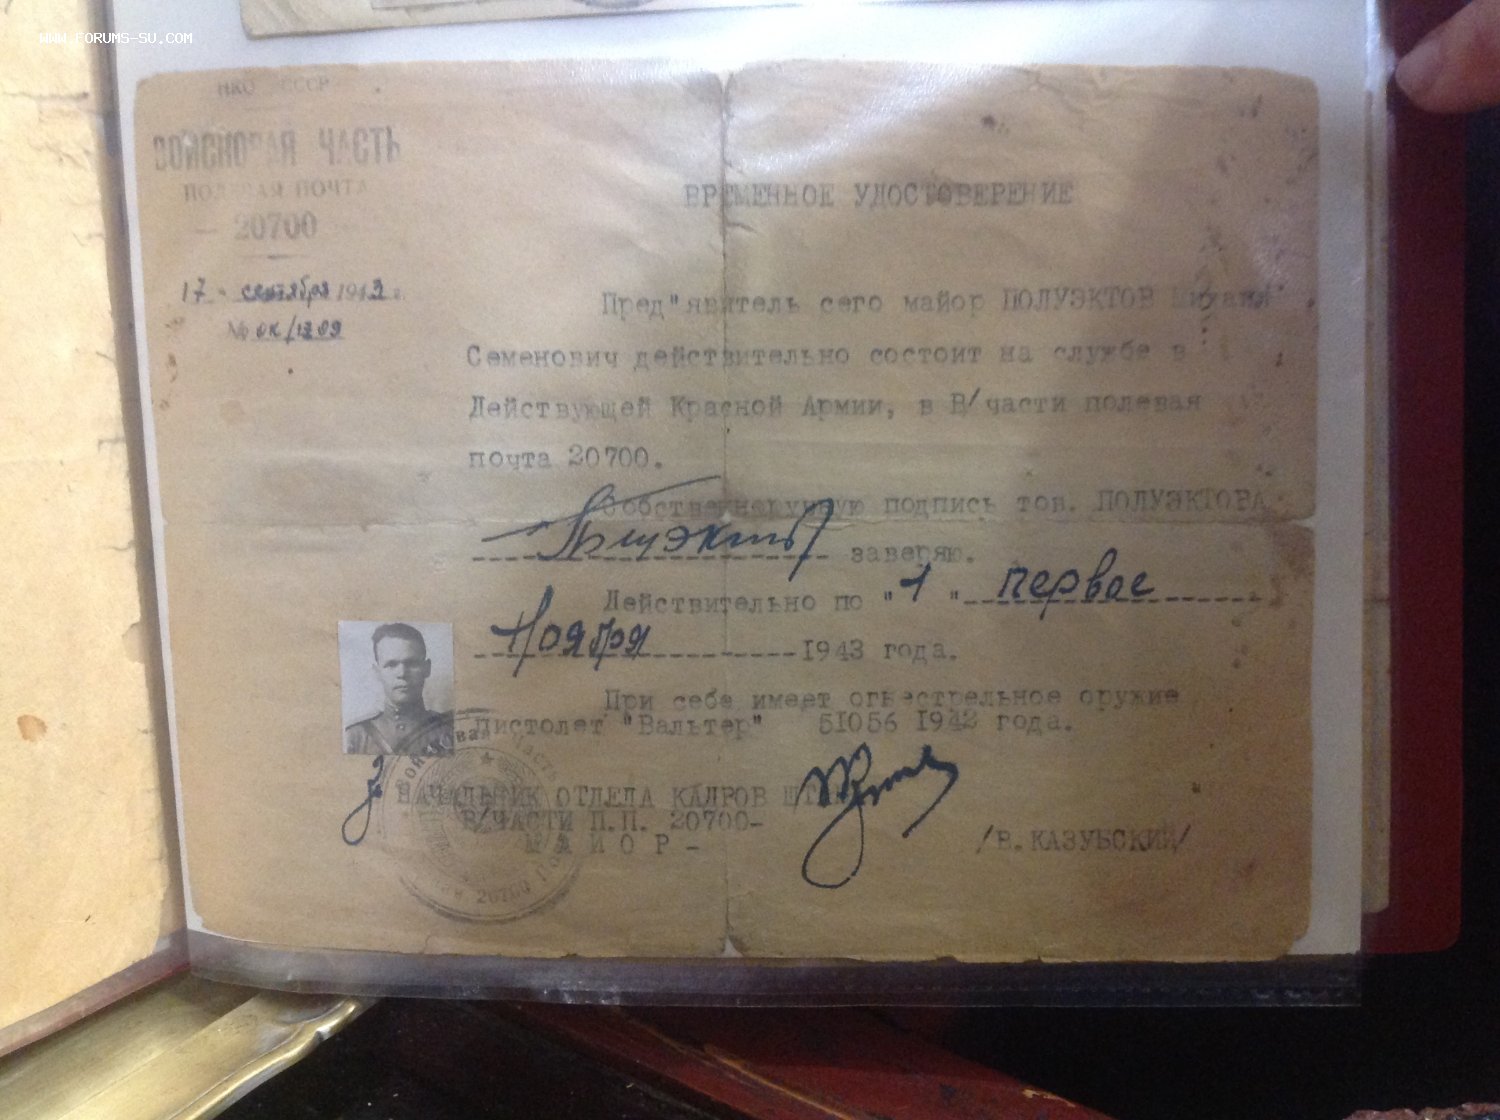 WWW.FORUMS-SU.COM
НКО СССР
ВОЙСКОВАЯ ЧАСТЬ
ПОЛЕВАЯ ПОЧТА
— 20700
17 - сентября 1943 г.
№ ок/1309
ВРЕМЕННОЕ УДОСТОВЕРЕНИЕ
Пред"явитель сего майор ПОЛУЭКТОВ Михаил
Семенович действительно состоит на службе в
Действующей Красной Армии, в В/части полевая
почта 20700.
Собственноручную подпись тов. ПОЛУЭКТОРА
заверяю.
Действительно по "1" первое
Ноября 1943 года.
При себе имеет огнестрельное оружие
пистолет "Вальтер" 51056 1942 года.
НАЧАЛЬНИК ОТДЕЛА КАДРОВ
В/ЧАСТИ П.П. 20700-
МАЙОР -
/В.КАЗУБСКИЙ/
Войсковая часть
20700